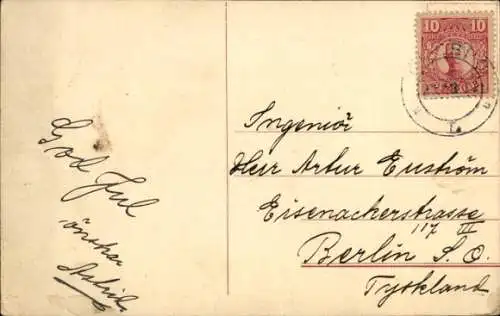 God Jul
önskar
Astrid
10 10
Ingeniör
Herr Artur Enström
Eisenackerstrasse
117 III
Berlin S.O.
Tyskland